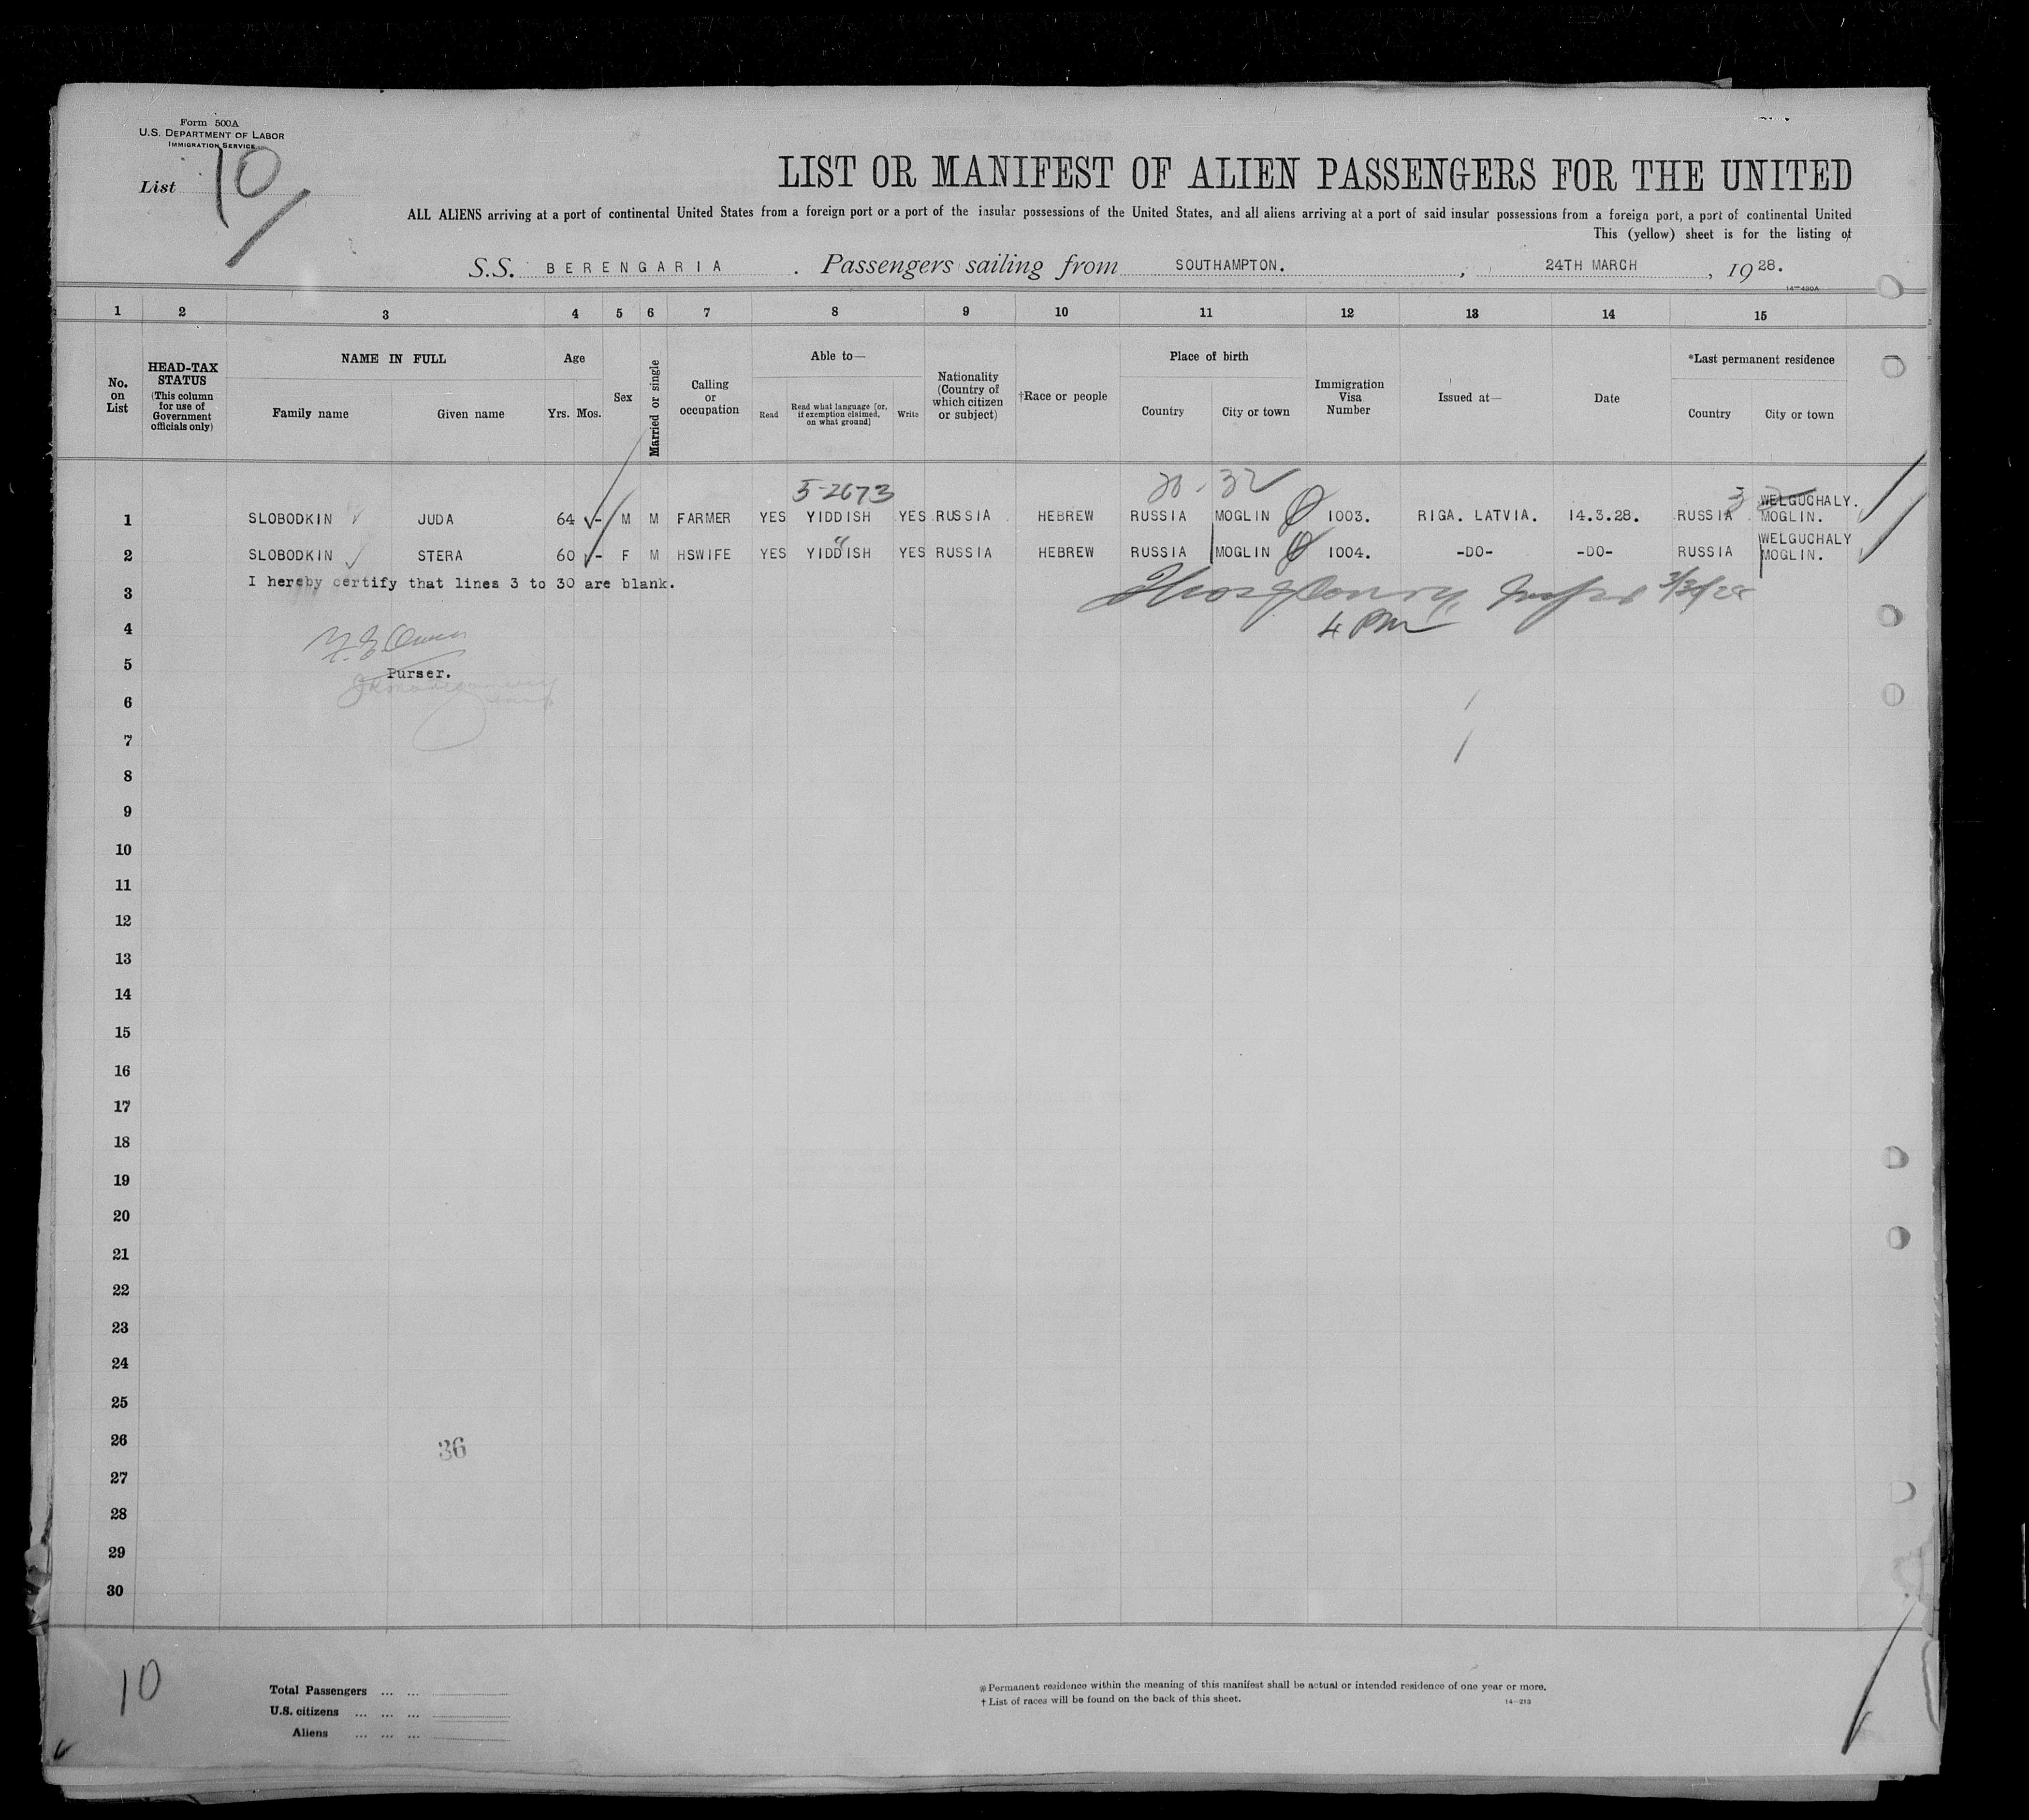 Form 500A
U.S. DEPARTMENT OF LABOR
IMMIGRATION SERVICE
List 10
LIST OR MANIFEST OF ALIEN PASSENGERS FOR THE UNITED
ALL ALIENS arriving at a port of continental United States from a foreign port or a port of the insular possessions of the United States, and all aliens arriving at a port of said insular possessions from a foreign port, a port of continental United
This (yellow) sheet is for the listing of
S.S. BERENGARIA . Passengers sailing from SOUTHAMPTON. , 24TH MARCH , 19 28.
14—480A
1 2 3 4 5 6 7 8 9 10 11 12 13 14 15
No. on List
HEAD-TAX STATUS (This column for use of Government officials only)
NAME IN FULL
Family name Given name
Age
Yrs. Mos.
Sex
Married or single
Calling or occupation
Able to—
Read
Read what language [or, if exemption claimed, on what ground]
Write
Nationality (Country of which citizen or subject)
†Race or people
Place of birth
Country City or town
Immigration Visa Number
Issued at—
Date
*Last permanent residence
Country City or town
5-2673 20-32 3
WELGUCHALY.
1 SLOBODKIN JUDA 64 - M M FARMER YES YIDDISH YES RUSSIA HEBREW RUSSIA MOGLIN 1003. RIGA. LATVIA. 14.3.28. RUSSIA MOGLIN.
WELGUCHALY
2 SLOBODKIN STERA 60 - F M HSWIFE YES YIDDISH YES RUSSIA HEBREW RUSSIA MOGLIN 1004. -DO- -DO- RUSSIA MOGLIN.
I hereby certify that lines 3 to 30 are blank.
3 3/30/28
4 4 PM
5 Purser.
6
7
8
9
10
11
12
13
14
15
16
17
18
19
20
21
22
23
24
25
26 36
27
28
29
30
10
Total Passengers ... ...
U.S. citizens ... ... ...
Aliens ... ... ...
*Permanent residence within the meaning of this manifest shall be actual or intended residence of one year or more.
† List of races will be found on the back of this sheet. 14—213